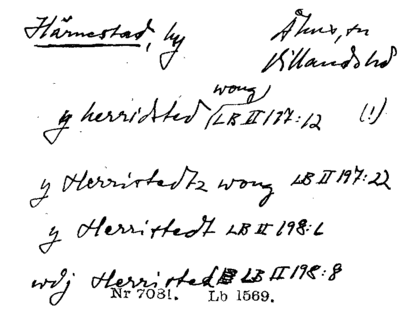 Härnestad, by Åhus, sn
Villands hd
wong
y herridsted (LB II 197:12 (!)
y Herristedtz wong LB II 197:22
y Herristedt LB II 198:6
wdj Herristed LB II 198:8
Nr 7081. Lb 1569.